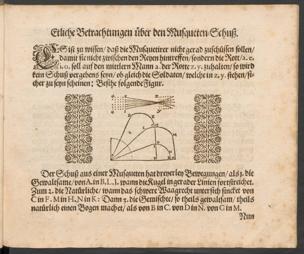 Etliche Betrachtungen über den Musqueten-Schuß.
ES ist zu wissen / daß die Musquetirer nicht gerad zuschiessen sollen /
damit sie nicht zwischen den Reyen hintreffen / sondern die Rott / 2. 6.
soll auf den mittlern Mann 2. der Rotte x. y. zuhalten / so wird
kein Schuß vergebens seyn / ob gleich die Soldaten / welche in z. y. stehen / si-
cher zu seyn scheinen; Besihe folgende Figur.
Der Schuß aus einer Musqueten hat dreyerley Bewegungen / als 1. die
Gewaltsame / von A. in B. I. L. wann die Kugel in gerader Linien fortstreichet.
Zum 2. die Natürliche / wann das schwere Waagrecht untersich sincket von
C in F. M in H, N in K: Dann 3. die Gemischte / so theils gewaltsam / theils
natürlich einen Bogen machet / als von B in C. von D in N. von G in M.
Nun